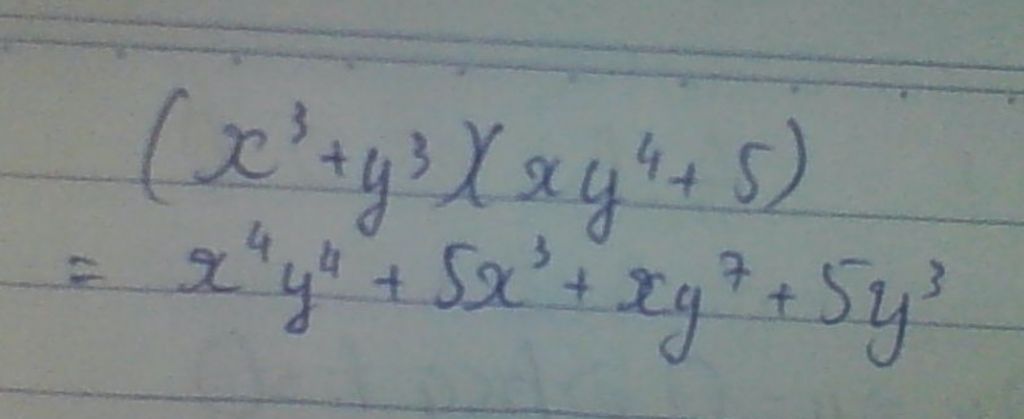 (x³+y³)(xy⁴+5)
= x⁴y⁴+5x³+xy⁷+5y³